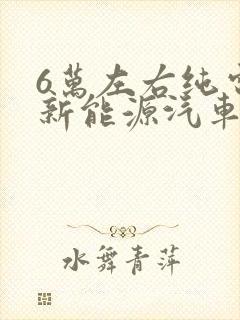 6萬左右纯
新能源汽車
水舞青萍